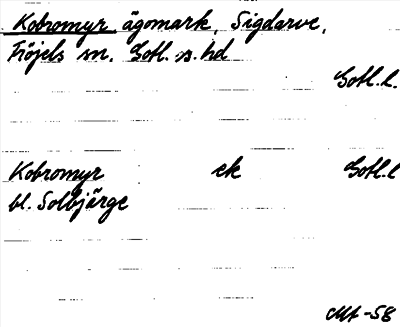 Kobromyr ägomark, Sigdarve,
Fröjels sn. Gotl. s. hd
Gotl. l.
Kobromyr ek Gotl. l
bl. Solbjärge
Mf -58